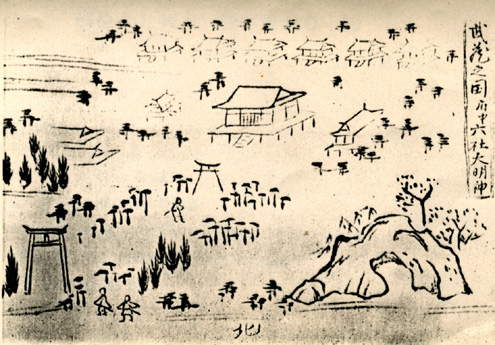 武蔵之国府中六社大明神
北